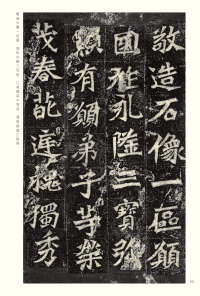 敬造石像一區願
國祚永隆三寶弥
顯有願弟子等榮
茂春葩庭槐獨秀